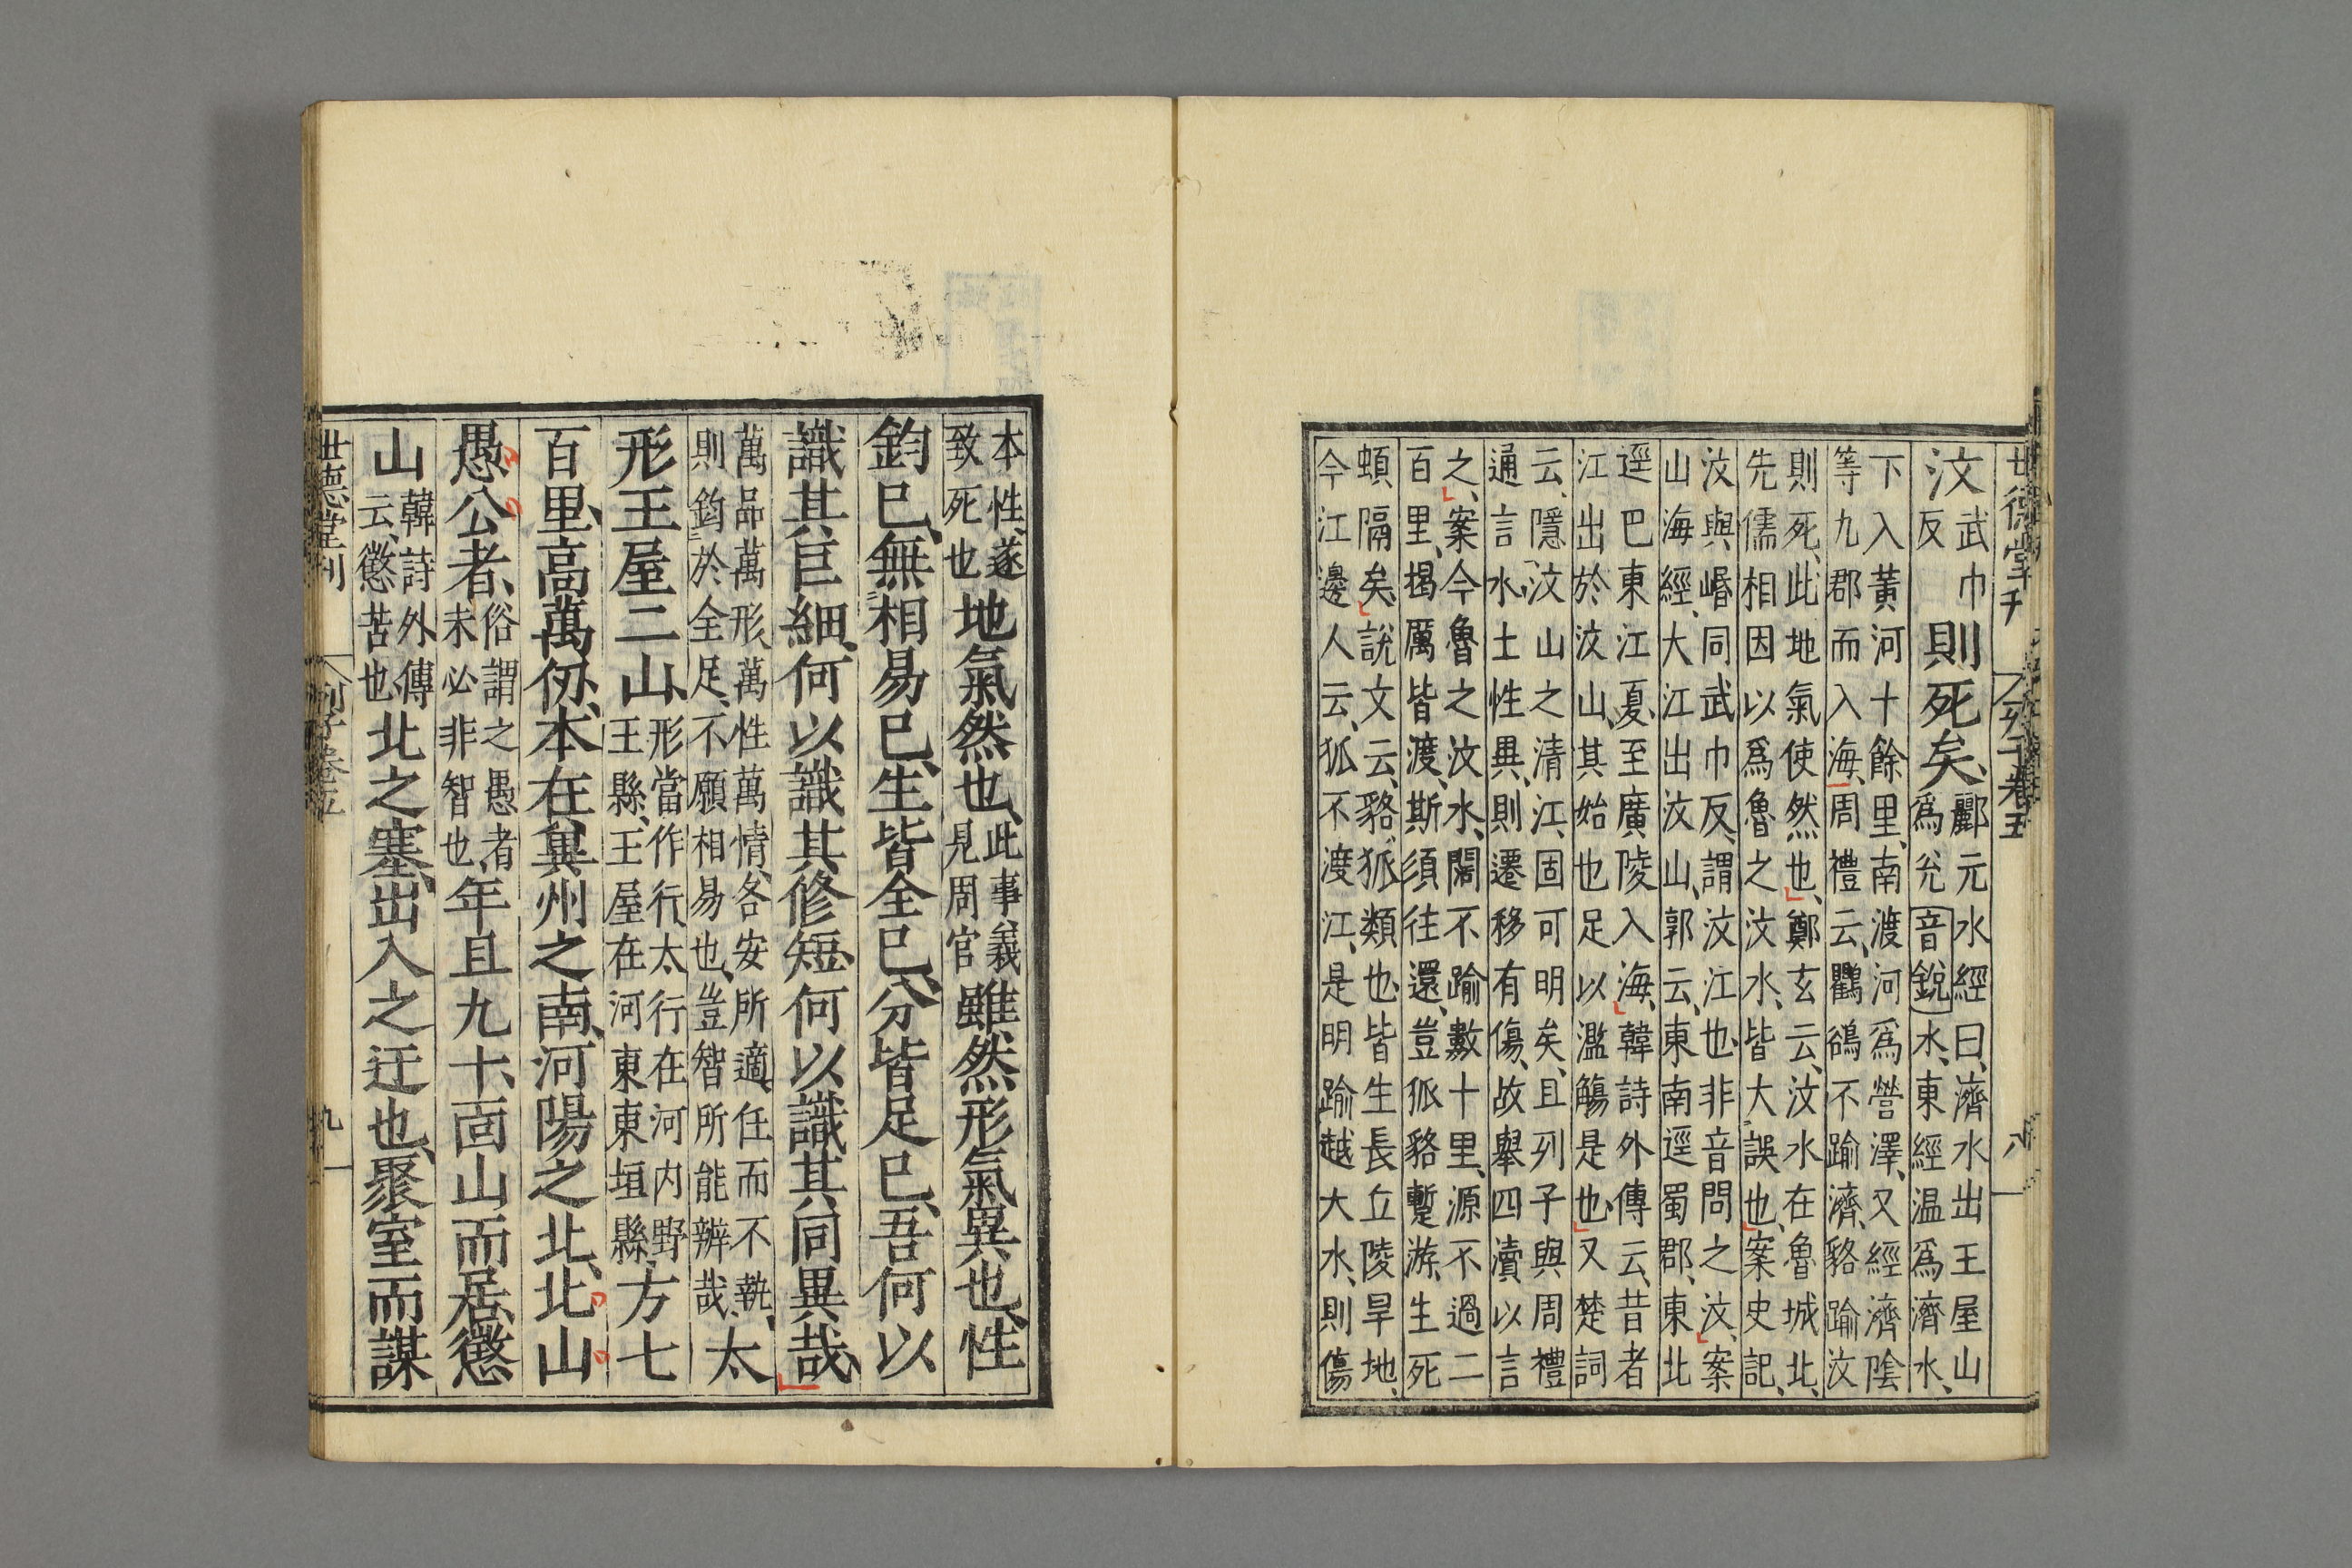 世德堂刊
列子卷五
八
汶武巾反則死矣、酈元水經曰、濟水出王屋山爲兊音銳水、東經温爲濟水、
下入黃河十餘里、南渡河爲營澤、又經濟陰等九郡而入海、周禮云、鸜鵒不踰濟、貉踰汶
則死、此地氣使然也、鄭玄云、汶水在魯城北、先儒相因以爲魯之汶水、皆大誤也、案史記、
汶與㟭同武巾反、謂汶江也、非音問之汶、案山海經、大江出汶山、郭云、東南逕蜀郡、東北
逕巴東江夏、至廣陵入海、韓詩外傳云、昔者江出於汶山、其始也足以濫觴是也、又楚詞
云、隱汶山之清江、固可明矣、且列子與周禮通言水土性異、則遷移有傷、故舉四瀆以言
之、案今魯之汶水、闊不踰數十里、源不過二百里、揭厲皆渡、斯須往還、豈狐貉蹔游、生死
頓隔矣、說文云、貉、狐類也、皆生長丘陵旱地、今江邊人云、狐不渡江、是明踰越大水、則傷
本性、遂致死也地氣然也、此事義見周官雖然形氣異也、性
鈞已、無相易已、生皆全已、分皆足已、吾何以
識其巨細、何以識其修短、何以識其同異哉、
萬品萬形、萬性萬情、各安所適、任而不執、則鈞於全足、不願相易也、豈智所能辨哉、太
形王屋二山、形當作行、太行在河内野王縣、王屋在河東東垣縣、方七
百里、高萬仞、本在兾州之南、河陽之北、北山
愚公者、俗謂之愚者未必非智也、年且九十、面山而居、懲
山韓詩外傳云、懲苦也北之塞、出入之迂也、聚室而謀
世德堂刊
列子卷五
九